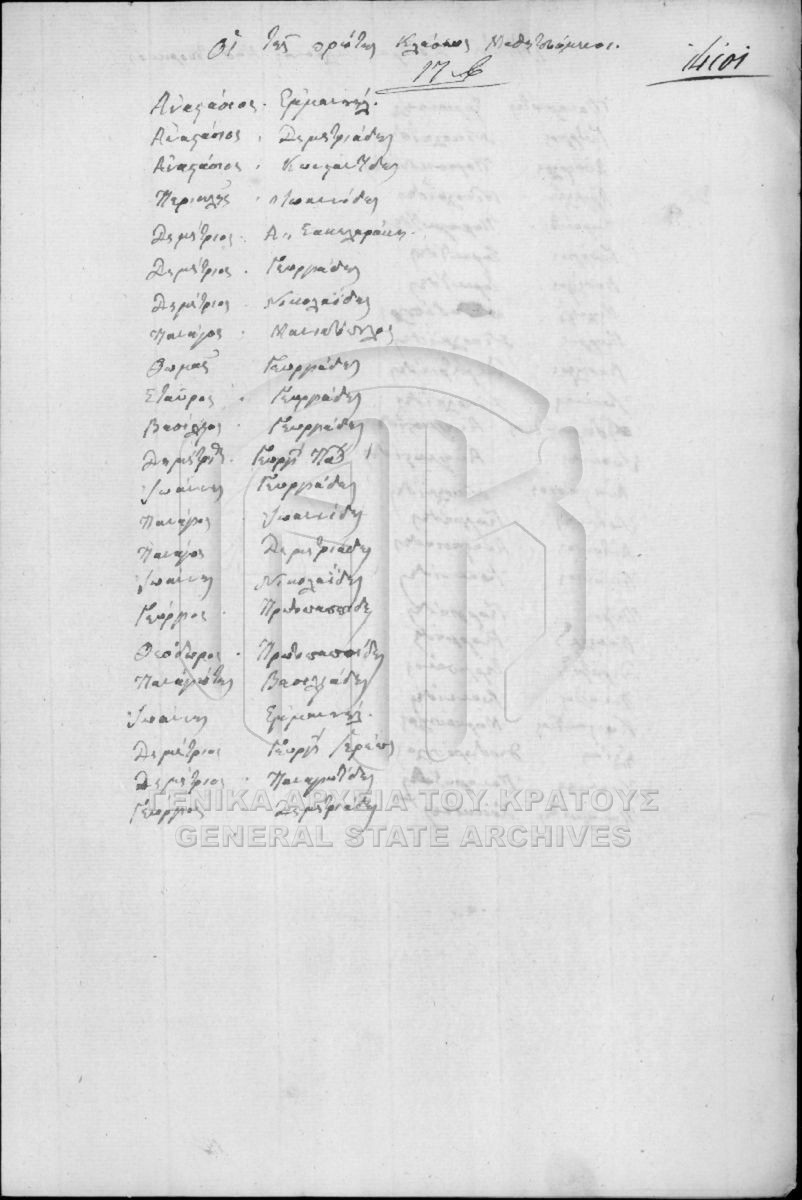 Οἱ τῆς πρώτης κλάσεως Μαθητευόμενοι.
Ἀναςάσιος. Ἐμμανουήλ.
Ἀναςάσιος. Δημητριάδης
Ἀναςάσιος. Κωνςαντίδης
Περικλῆς. Ἰωαννίδης
Δημήτριος. Α. Σακελαράκη.
Δημήτριος. Γεωργιάδης
Δημήτριος. Νικολαΐδης
Παναγος. Μανιατόπουλος
Θωμᾶς Γεωργιάδης
Σταῦρος. Γεωργιάδης
Βασίλειος. Γεωργιάδης
Δημήτριος. Γεωργ
Ἰωάννης Γεωργιάδης
Παναγος. Ἰωαννίδης
Παναγος Δημητριάδης
Ἰωάννης Νικολαΐδης
Γεώργιος. Πρωτοπαππίδης
Θεόδωρος. Πρωτοπαππίδης
Παναγιώτης Βασιλειάδης
Ἰωάννης Ἐμμανουήλ.
Δημήτριος Γεωργ
Δημήτριος. Παναγιωτίδης
Γεώργιος Δημητριάδης
ΓΕΝΙΚΑ ΑΡΧΕΙΑ ΤΟΥ ΚΡΑΤΟΥΣ
GENERAL STATE ARCHIVES